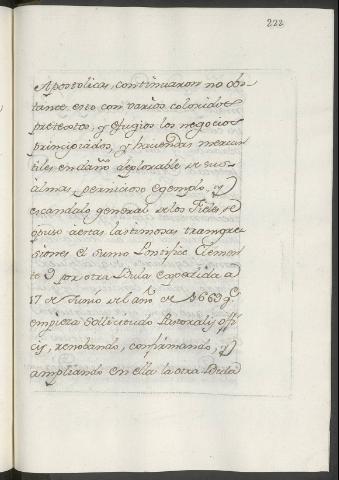 222
Apostolicas, continuaron no obs-
tante esto con varios coloridos
pretextos, y efugios los negocios
principiados, y haciendas mercan
tiles en daño deplorable de sus
almas, pernicioso egemplo, y
escandalo general de los Fieles, se
opuso à estas lastimosas transgre
siones el Sumo Pontifice Clemen
te 9 por otra Bula expedida à
17 de Junio del año de 1669 q.e
empieza Sollicitudo Pastoralis offi
cij, renobando, confirmando, y
ampliando en ella la otra Bula